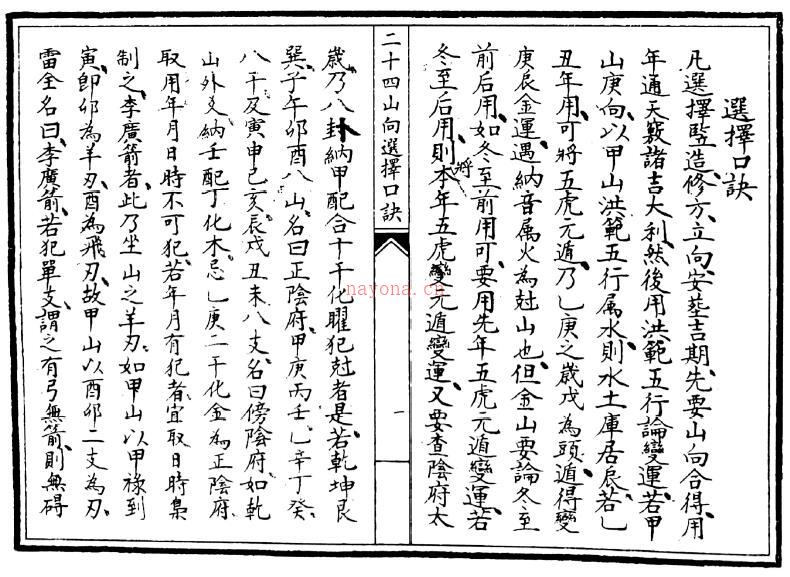 選擇口訣
凡選擇豎造、修方、立向、安塟吉期、先要山向合得、用
年通天竅諸吉大利、然後用洪範五行論變運、若甲
山庚向、以甲山洪範五行属水、則水土庫居辰、若乙
丑年用、可將五虎元遁、乃乙庚之歲戊為頭、遁得變
庚辰金運、遇納音属火為尅山也、但金山要論冬至
前后用、如冬至前用可、要用先年五虎元遁變運、若
冬至后用、則將本年五虎變元遁變運、又要查陰府太
二十四山向選擇口訣
一
歲乃八卦納甲配合十干化曜犯尅者是、若乾坤艮
巽、子午卯酉八山、名曰正陰府、甲庚丙壬、乙辛丁癸、
八干及寅申巳亥、辰戌丑未八支、名曰傍陰府、如乾
山外爻、納壬配丁化木、忌乙庚二干化金為正陰府、
取用年月日時不可犯、若年月有犯者、宜取日時梟
制之、李廣箭者、此乃坐山之羊刃、如甲山以甲祿到
寅、即卯為羊刃、酉為飛刃、故甲山以酉卯二支為刃、
雷全名曰、李廣箭、若犯單支、謂之有弓無箭、則無碍
nayona.cn